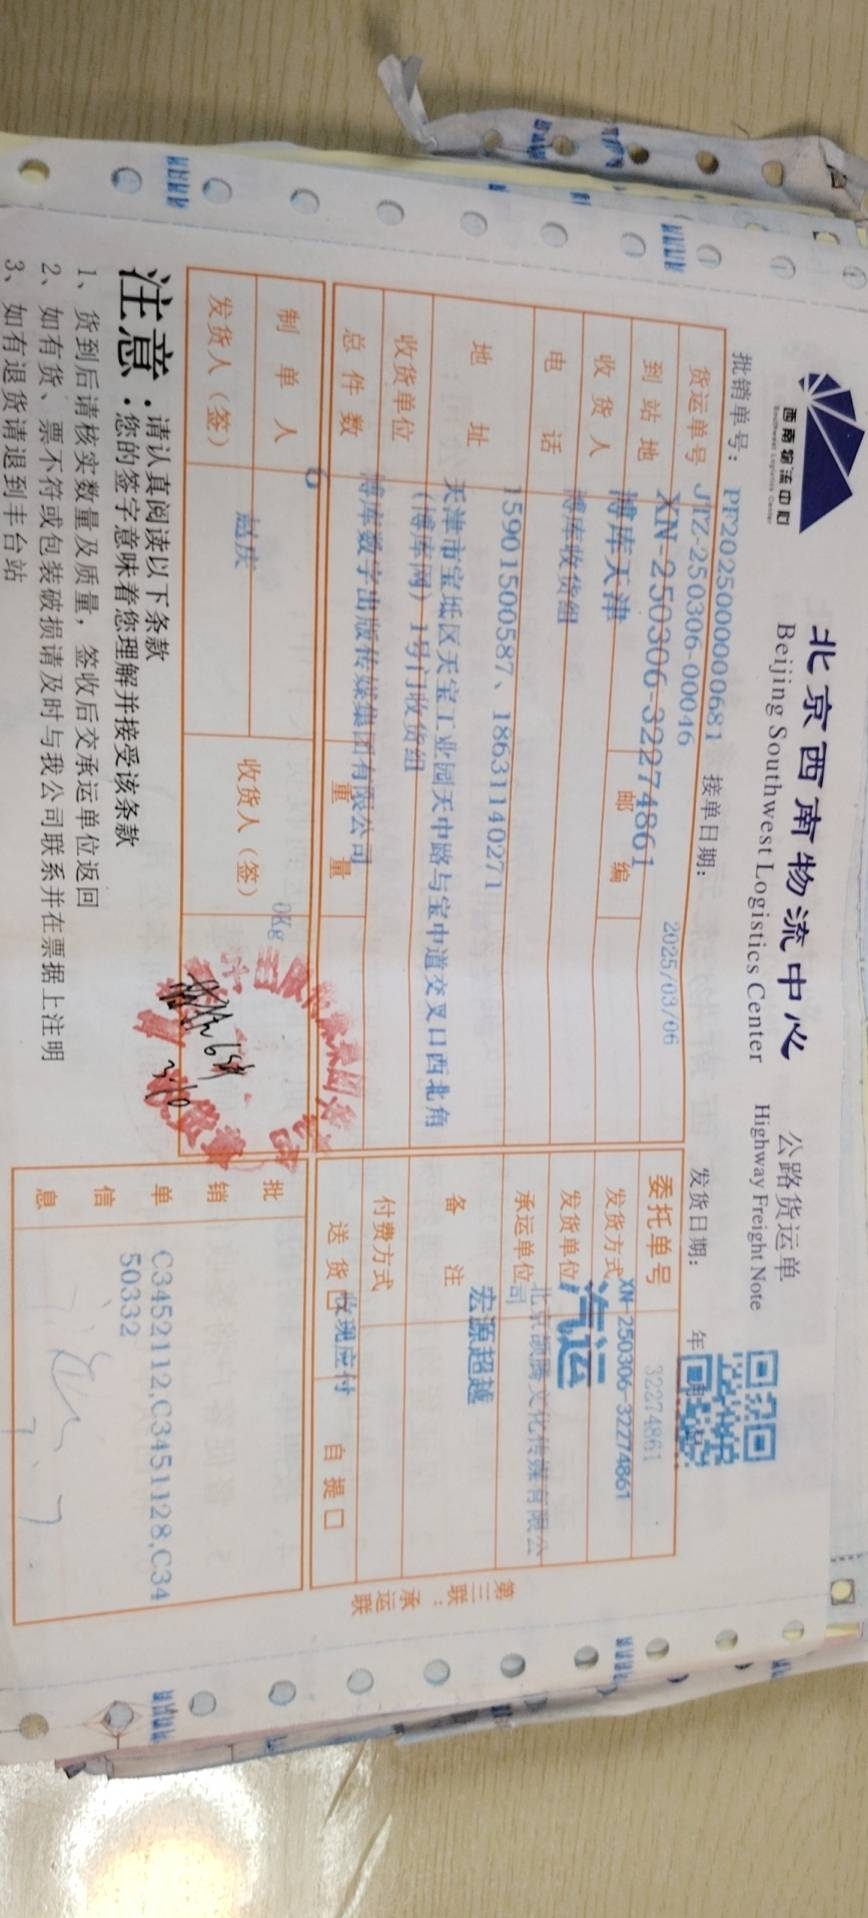 西南物流中心
Southwest Logistics Center
北京西南物流中心
Beijing Southwest Logistics Center
公路货运单
Highway Freight Note
批销单号：PF2025000000681
接单日期：
2025/03/06
发货日期：
年
货运单号
JTZ-250306-00046
委托单号
32274861
到站地
XN-250306-32274861
博库天津
邮编
发货方式
XN-250306-32274861
汽运
收货人
博库收货组
发货单位
北京颉腾文化传媒有限公司
电话
15901500587、18631140271
承运单位
宏源超越
地址
天津市宝坻区天宝工业园天中路与宝中道交叉口西北角
(博库网) 1号门收货组
备注
收货单位
博库数字出版传媒集团有限公司
付费方式
收现应付
总件数
6
重量
0Kg
送货口
自提口
制单人
赵庆
发货人（签）
收货人（签）
3.10
批销单信息
C3452112,C3451128,C34
50332
第三联：承运联
注意：请认真阅读以下条款
您的签字意味着您理解并接受该条款
1、货到后请核实数量及质量，签收后交承运单位返回
2、如有货、票不符或包装破损请及时与我公司联系并在票据上注明
3、如有退货请退到丰台站